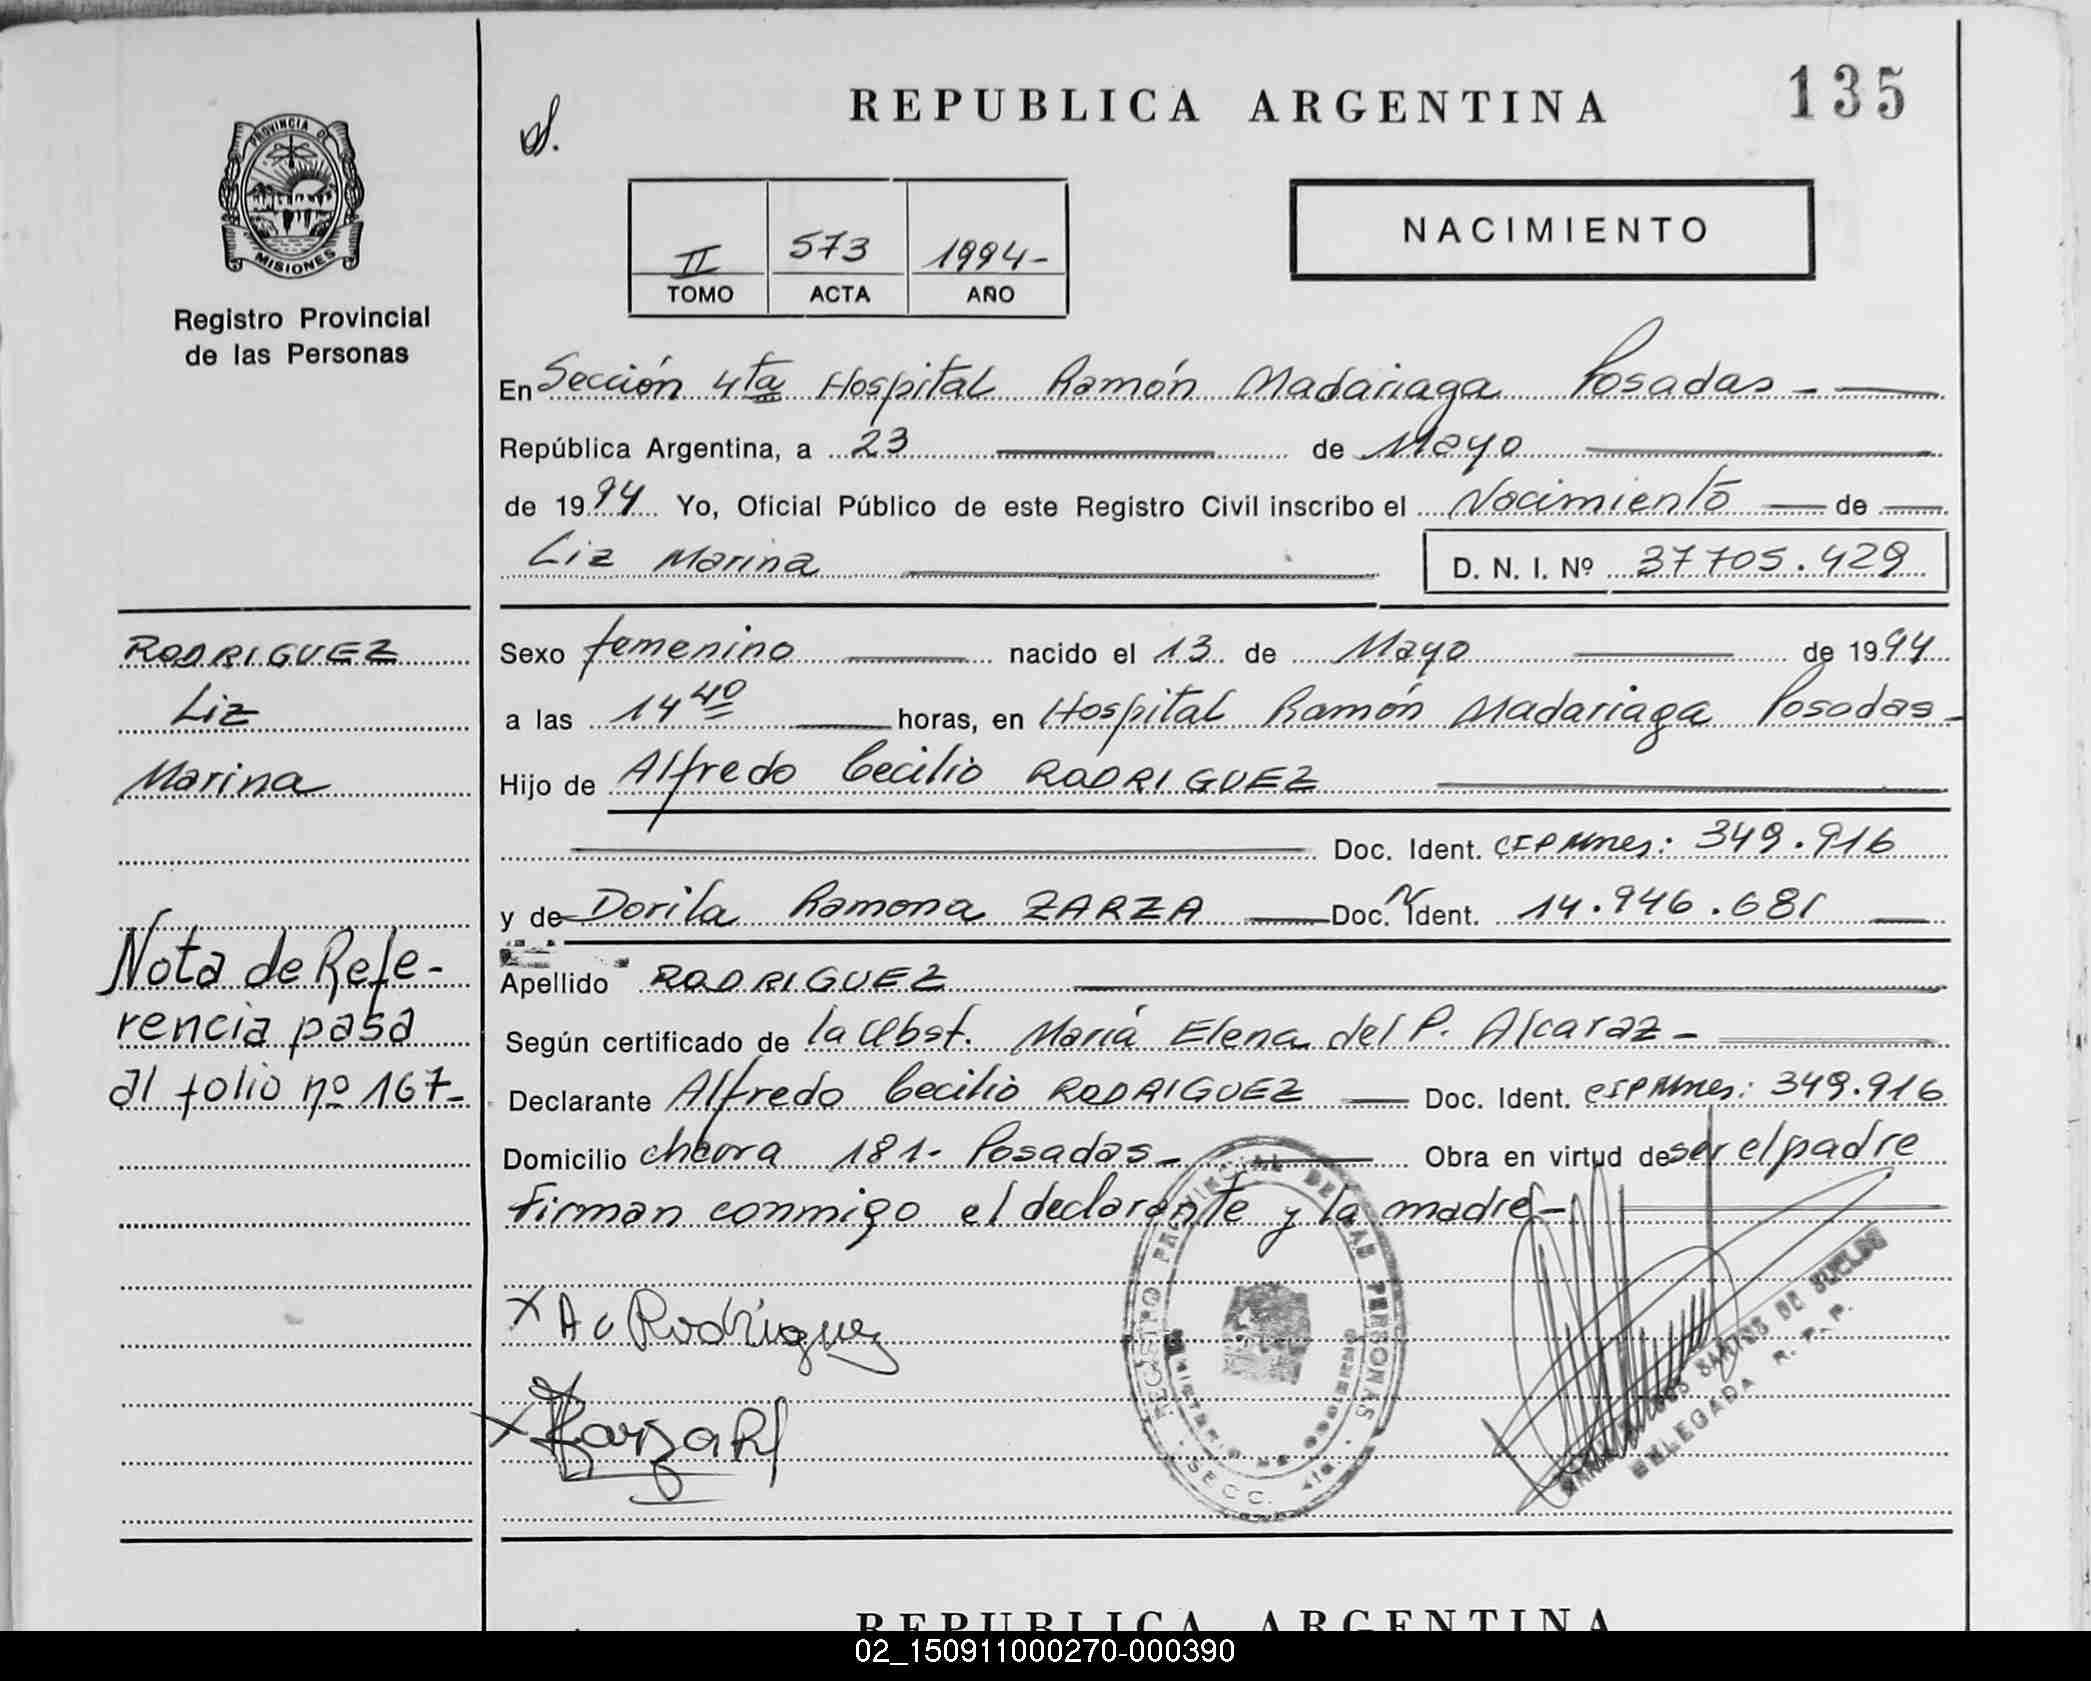 REPUBLICA ARGENTINA
135
PROVINCIA DE
MISIONES
Registro Provincial
de las Personas
II 573 1994-
TOMO ACTA AÑO
NACIMIENTO
En Sección 4ta Hospital Ramón Madariaga Posadas -
República Argentina, a 23 de Mayo
de 1994 Yo, Oficial Público de este Registro Civil inscribo el Nacimiento de
Liz Marina D. N. I. Nº 37705.429
RODRIGUEZ
Liz
Marina
Nota de Refe-
rencia pasa
al folio nº 167-
Sexo femenino nacido el 13 de Mayo de 1994
a las 14 40 horas, en Hospital Ramón Madariaga Posadas-
Hijo de Alfredo Cecilio RODRIGUEZ
Doc. Ident. CIPMnes: 349.916
y de Dorila Ramona ZARZA Doc. Ident. 14.946.681
Apellido RODRIGUEZ
Según certificado de la Obst. María Elena del P. Alcaraz -
Declarante Alfredo Cecilio RODRIGUEZ Doc. Ident. CIPMnes: 349.916
Domicilio chacra 181- Posadas - Obra en virtud de ser el padre
Firman conmigo el declarante y la madre-
X A C Rodriguez
X Zarza R
REGISTRO PROVINCIAL DE LAS PERSONAS
MINISTERIO DE GOBIERNO
SECC. 4ta.
SANTOS DE
DELEGADA
R. P. P.
REPUBLICA ARGENTINA
02_150911000270-000390